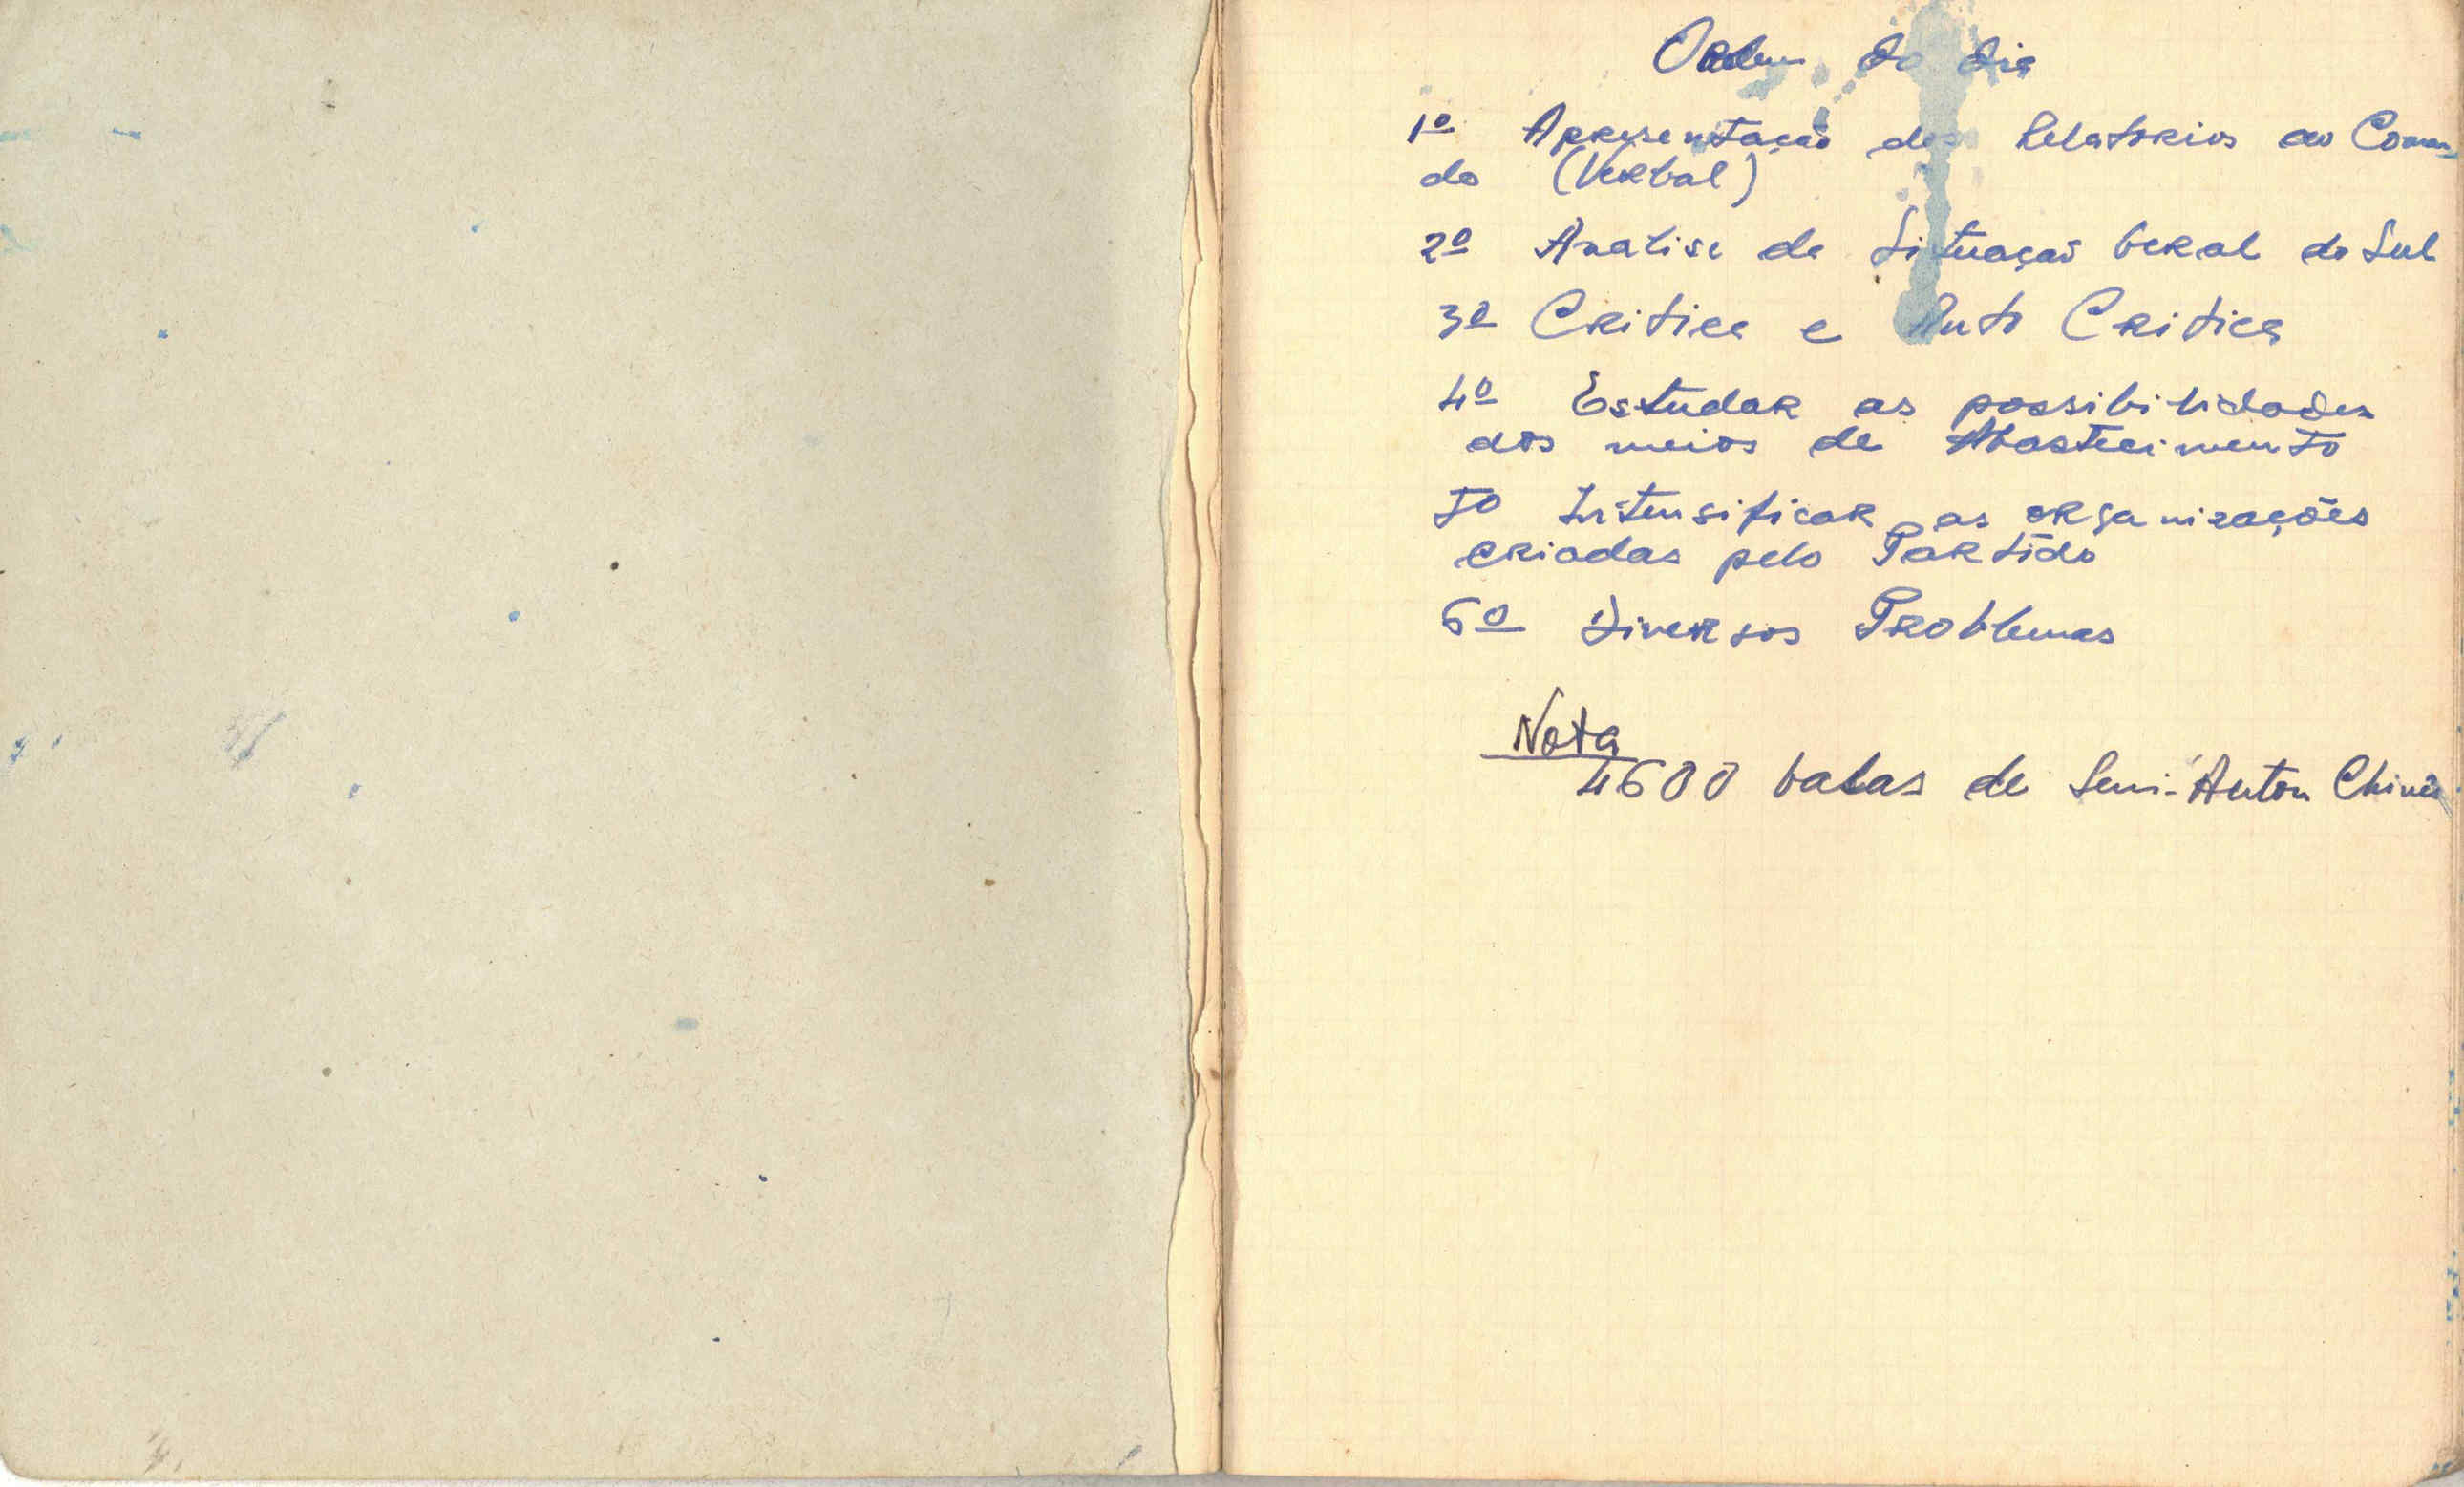 Ordem do dia
1º Apresentação dos Relatorios ao Coman
do (Verbal)
2º Analise da Situação Geral do Sul
3º Critica e Auto Critica
4º Estudar as possibilidades
dos meios de Abastecimento
5º Intensificar as organizações
criadas pelo Partido
6º Diversos Problemas
Nota
4600 balas de Semi-Auton Chinês